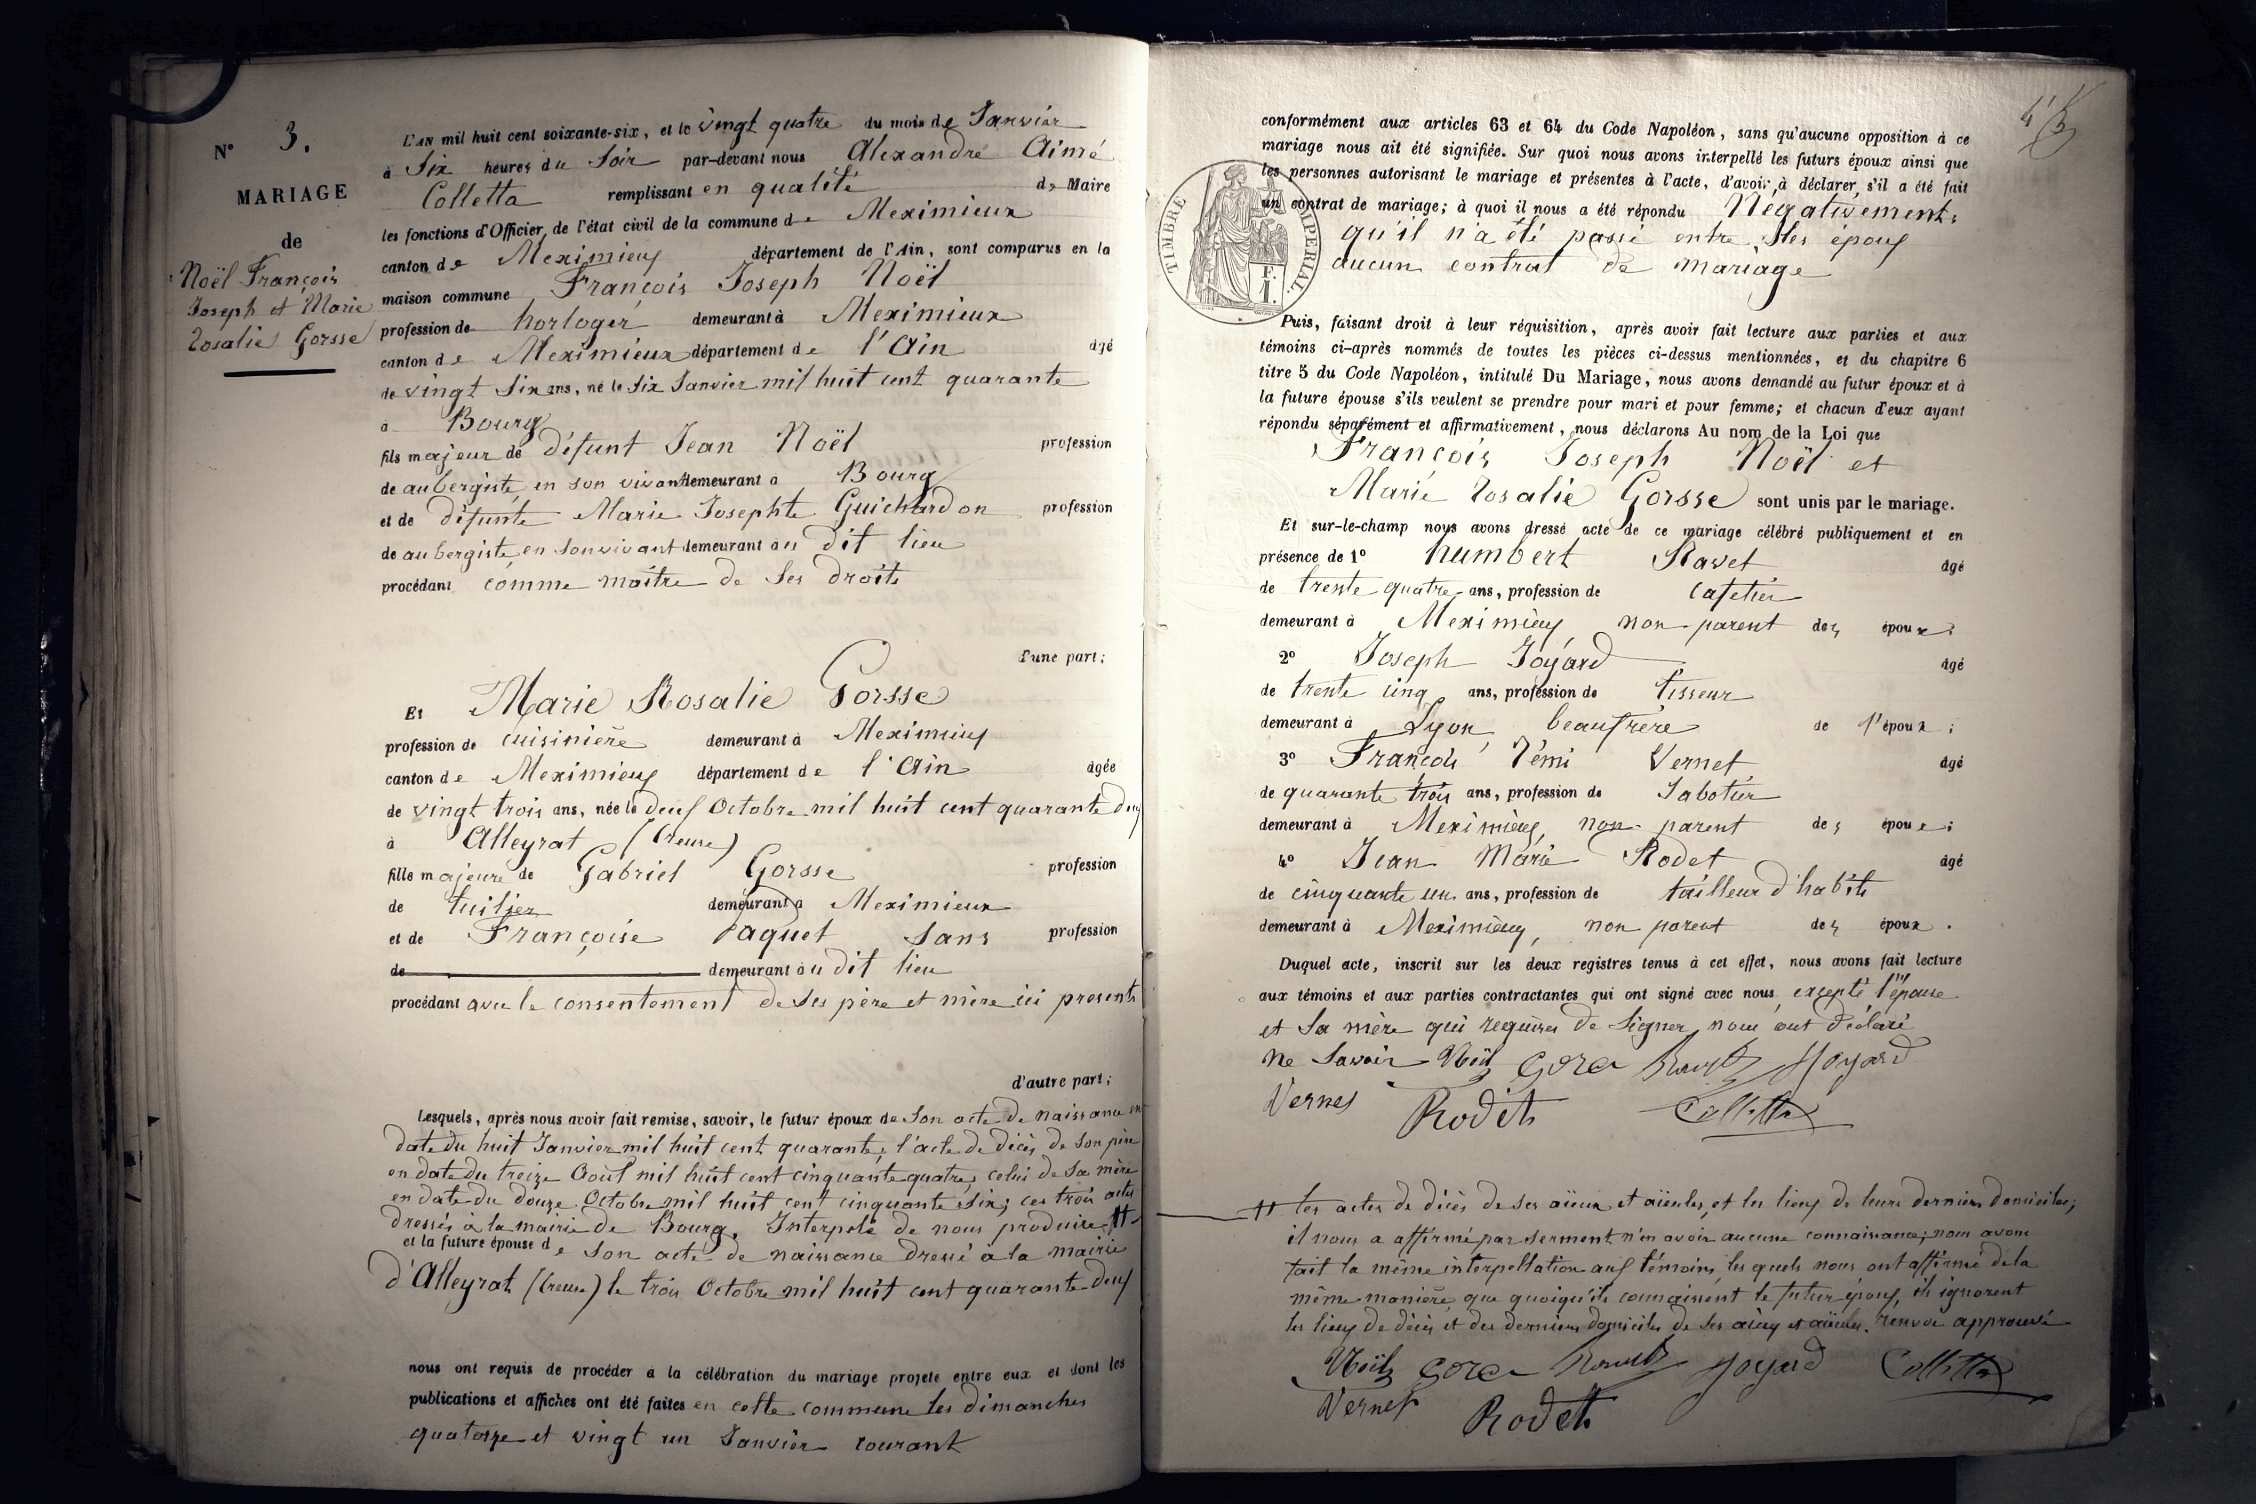 N° 3.
MARIAGE
de
Noël François
Joseph et Marie
Rosalie Gorsse
L'AN mil huit cent soixante-six, et le vingt quatre du mois de Janvier
à Six heures du Soir par-devant nous Alexandre Aimé
Colletta remplissant en qualité de Maire
les fonctions d'Officier de l'état civil de la commune de Meximieux
canton de Meximieux département de l'Ain, sont comparus en la
maison commune François Joseph Noël
profession de horloger demeurant à Meximieux
canton de Meximieux département de l'Ain âgé
de vingt Six ans, né le Six Janvier mil huit cent quarante
à Bourg
fils majeur de défunt Jean Noël profession
de aubergiste en son vivant demeurant à Bourg
et de défunte Marie Josephte Guichardon profession
de aubergiste en son vivant demeurant au dit lieu
procédant comme maître de ses droits
d'une part;
Et Marie Rosalie Gorsse
profession de cuisinière demeurant à Meximieux
canton de Meximieux département de l'Ain âgée
de vingt trois ans, née le deux Octobre mil huit cent quarante deux
à Alleyrat (Creuse)
fille majeure de Gabriel Gorsse profession
de tuilier demeurant à Meximieux
et de Françoise Paquet Sans profession
de demeurant au dit lieu
procédant avec le consentement de ses père et mère ici présents
d'autre part;
Lesquels, après nous avoir fait remise, savoir, le futur époux de Son acte de naissance en
date du huit Janvier mil huit cent quarante, l'acte de décès de son père
en date du treize Août mil huit cent cinquante quatre, celui de sa mère
en date du douze Octobre mil huit cent cinquante Six; ces trois actes
dressés à la mairie de Bourg. Interpelé de nous produire #
et la future épouse de son acte de naissance dressé à la mairie
d'Alleyrat (Creuse) le trois Octobre mil huit cent quarante deux
nous ont requis de procéder à la célébration du mariage projeté entre eux et dont les
publications et affiches ont été faites en cette commune les dimanches
quatorze et vingt un Janvier courant
TIMBRE IMPERIAL.
conformément aux articles 63 et 64 du Code Napoléon, sans qu'aucune opposition à ce
mariage nous ait été signifiée. Sur quoi nous avons interpellé les futurs époux ainsi que
les personnes autorisant le mariage et présentes à l'acte, d'avoir à déclarer, s'il a été fait
un contrat de mariage; à quoi il nous a été répondu Négativement,
qu'il n'a été passé entre les époux
aucun contrat de mariage
Puis, faisant droit à leur réquisition, après avoir fait lecture aux parties et aux
témoins ci-après nommés de toutes les pièces ci-dessus mentionnées, et du chapitre 6
titre 5 du Code Napoléon, intitulé Du Mariage, nous avons demandé au futur époux et à
la future épouse s'ils veulent se prendre pour mari et pour femme; et chacun d'eux ayant
répondu séparément et affirmativement, nous déclarons Au nom de la Loi que
François Joseph Noël et
Marie Rosalie Gorsse sont unis par le mariage.
Et sur-le-champ nous avons dressé acte de ce mariage célébré publiquement et en
présence de 1° humbert Ravet âgé
de trente quatre ans, profession de cafetier
demeurant à Meximieux non parent des époux;
2° Joseph Joyard âgé
de trente cinq ans, profession de tisseur
demeurant à Lyon, beaufrère de l'époux;
3° François Rémi Vernet âgé
de quarante trois ans, profession de Sabotier
demeurant à Meximieux, non parent des époux;
4° Jean Marie Rodet âgé
de cinquante un ans, profession de tailleur d'habits
demeurant à Meximieux, non parent des époux.
Duquel acte, inscrit sur les deux registres tenus à cet effet, nous avons fait lecture
aux témoins et aux parties contractantes qui ont signé avec nous excepté l'épouse
et sa mère qui requises de signer nous ont déclaré
ne Savoir Noël Gorce Ravet Joyard
Vernet Rodet Colletta
# les actes de décès de ses aïeux et aïeules, et les lieux de leurs derniers domiciles;
il nous a affirmé par serment n'en avoir aucune connaissance; nous avons
fait la même interpellation aux témoins, les quels nous ont affirmé de la
même manière que quoiqu'ils connaissent le futur époux, ils ignorent
les lieux de décès et des derniers domiciles de ses aïeux et aïeules. renvoi approuvé
Noël Gorce Ravet Joyard Colletta
Vernet Rodet